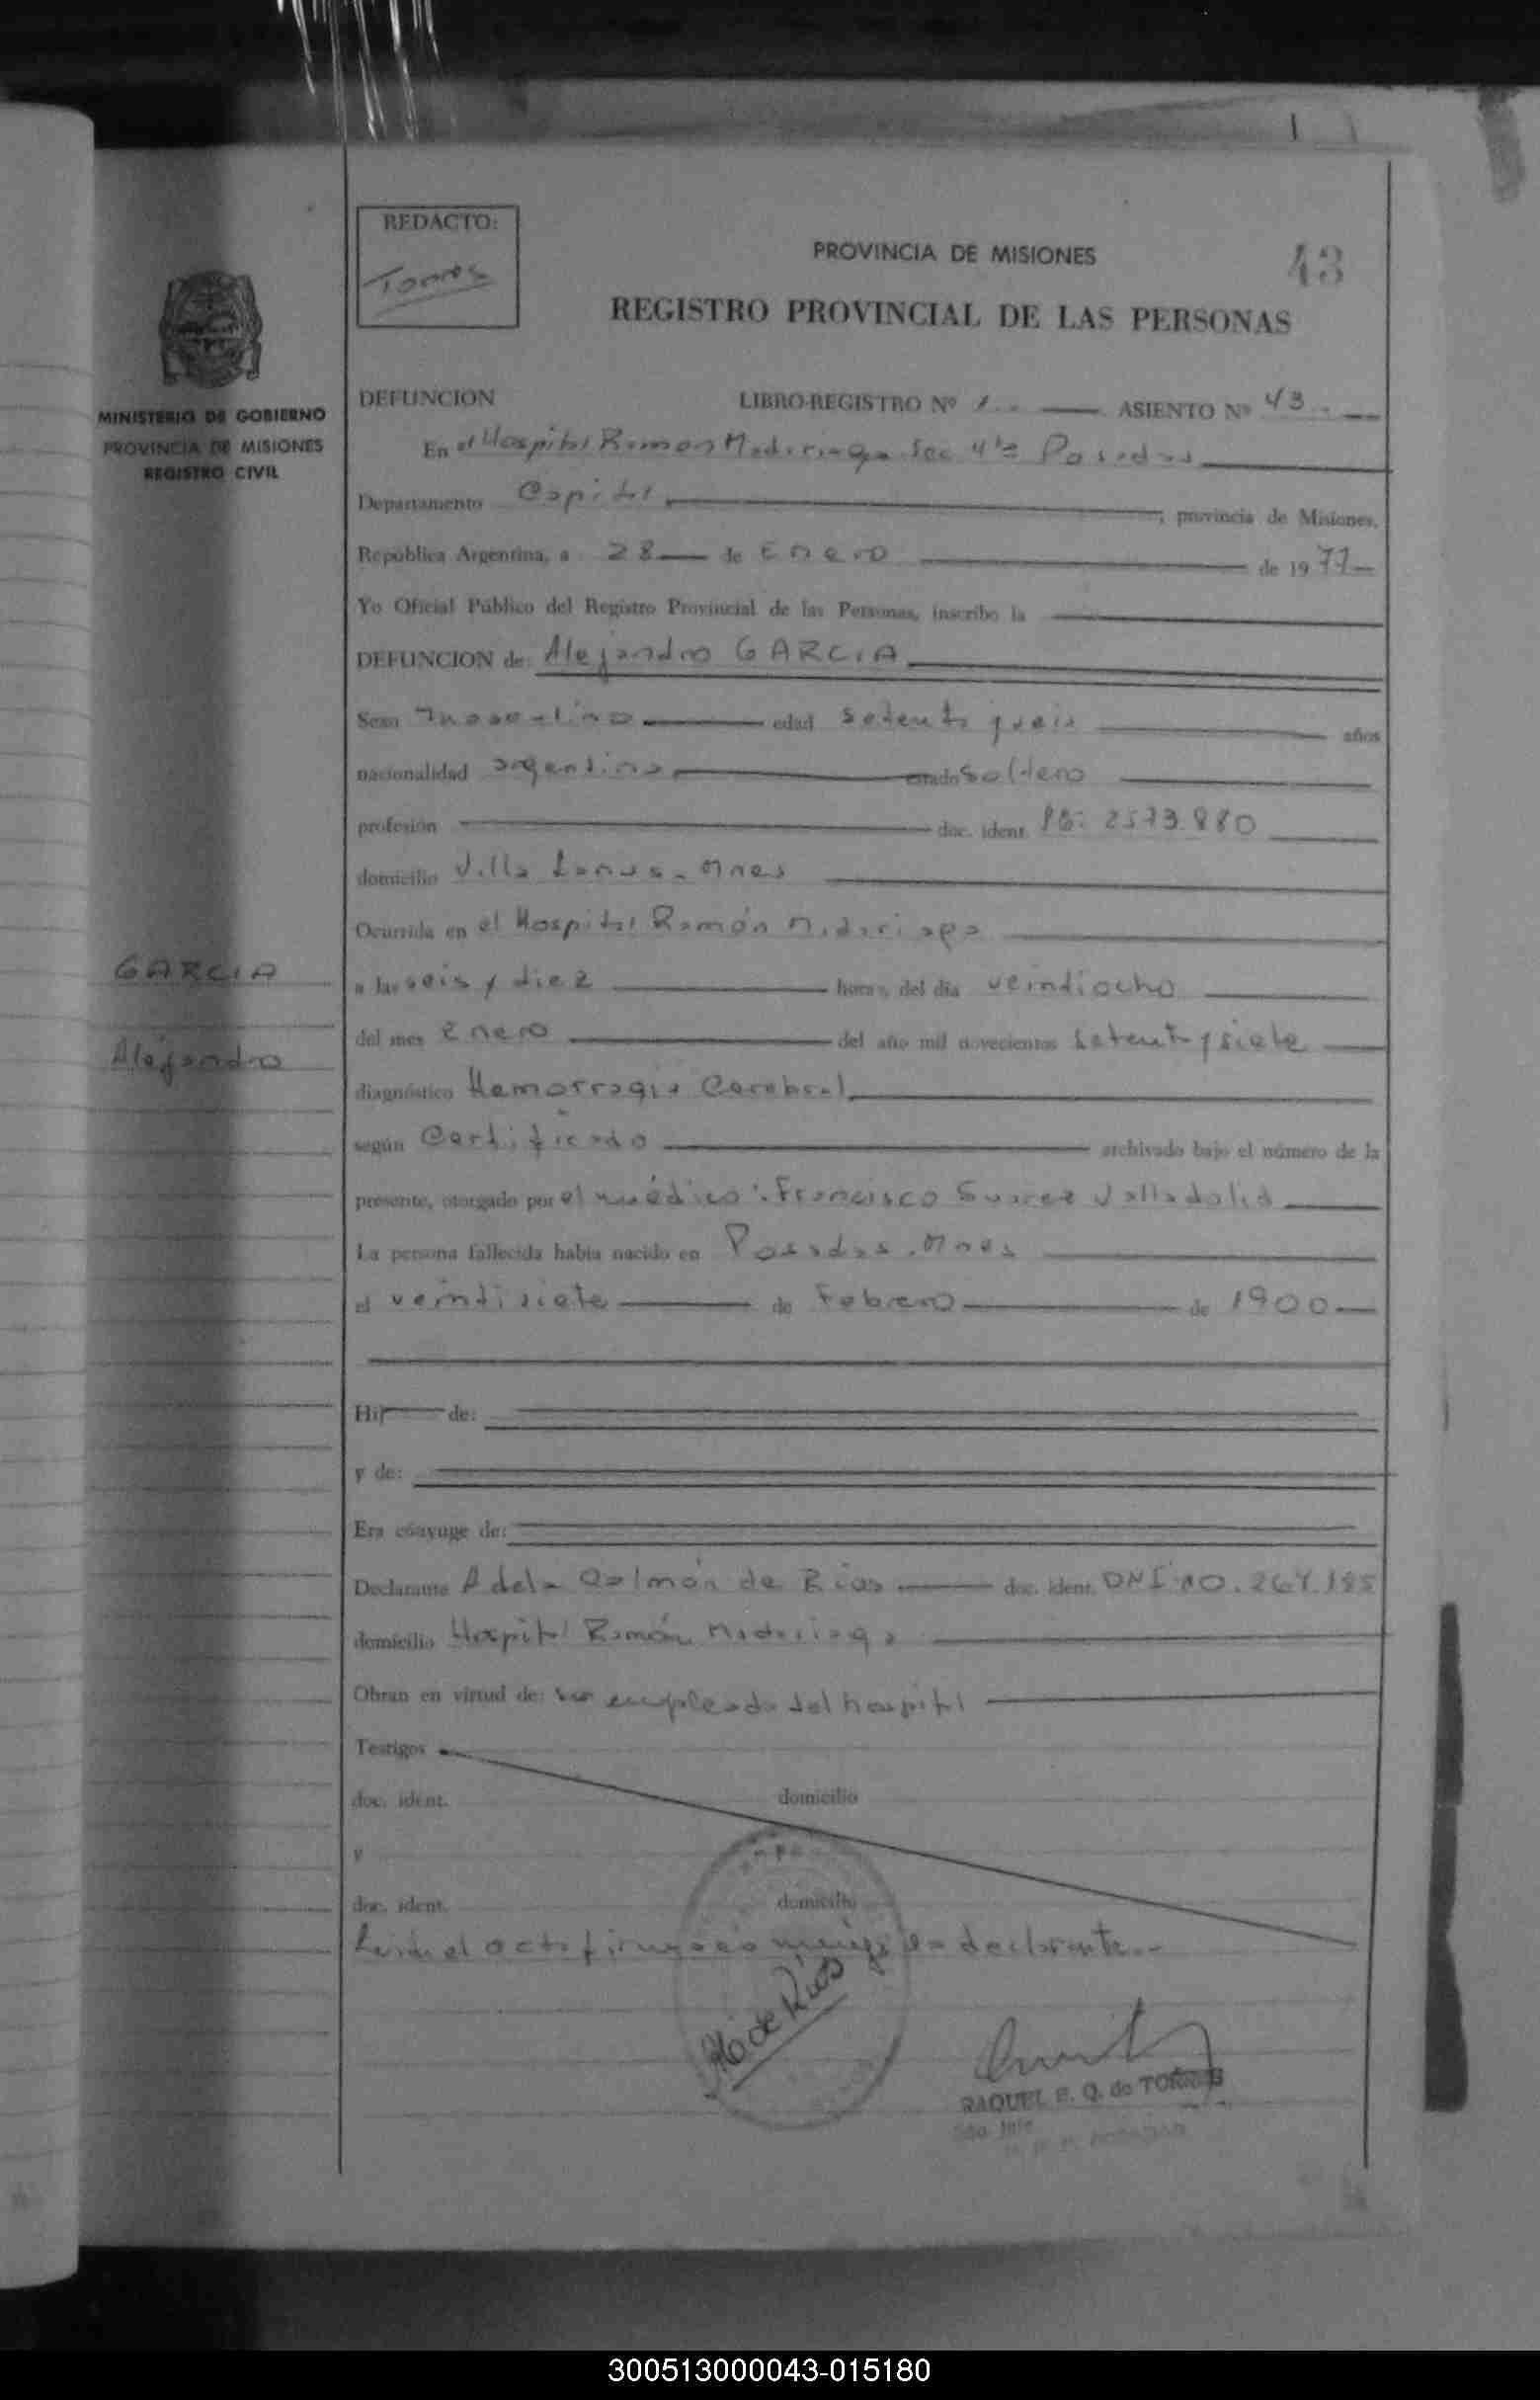 REDACTO:
Torres
PROVINCIA DE MISIONES
43
REGISTRO PROVINCIAL DE LAS PERSONAS
MINISTERIO DE GOBIERNO
PROVINCIA DE MISIONES
REGISTRO CIVIL
DEFUNCION LIBRO-REGISTRO Nº 1 ASIENTO Nº 43
En el Hospital Ramon Madariaga Sec 4ta Posadas
Departamento Capital, provincia de Misiones,
República Argentina, a 28 de Enero de 1977
Yo Oficial Público del Registro Provincial de las Personas, inscribo la
DEFUNCION de: Alejandro GARCIA
Sexo masculino edad setenta y seis años
nacionalidad argentina estado Soltero
profesión doc. ident. 2573.880
domicilio Villa Lanus - Mnes
Ocurrida en el Hospital Ramón Madariaga
GARCIA
a las seis y diez horas, del día veintiocho
del mes Enero del año mil novecientos setenta y siete
Alejandro
diagnóstico Hemorragia Cerebral
según Certificado archivado bajo el número de la
presente, otorgado por el médico: Francisco Suarez Valladolid
La persona fallecida había nacido en Posadas. Mnes
el veintisiete de Febrero de 1900
Hij de:
y de:
Era cónyuge de:
Declarante Adela de Rios doc. ident. DNI 10.264.185
domicilio Hospital Ramón Madariaga
Obran en virtud de: ser empleada del hospital
Testigos
doc. ident. domicilio
y
doc. ident. domicilio
Leida el acta firma la declarante.-
de Rios
RAQUEL E. Q. de TORRES
300513000043-015180